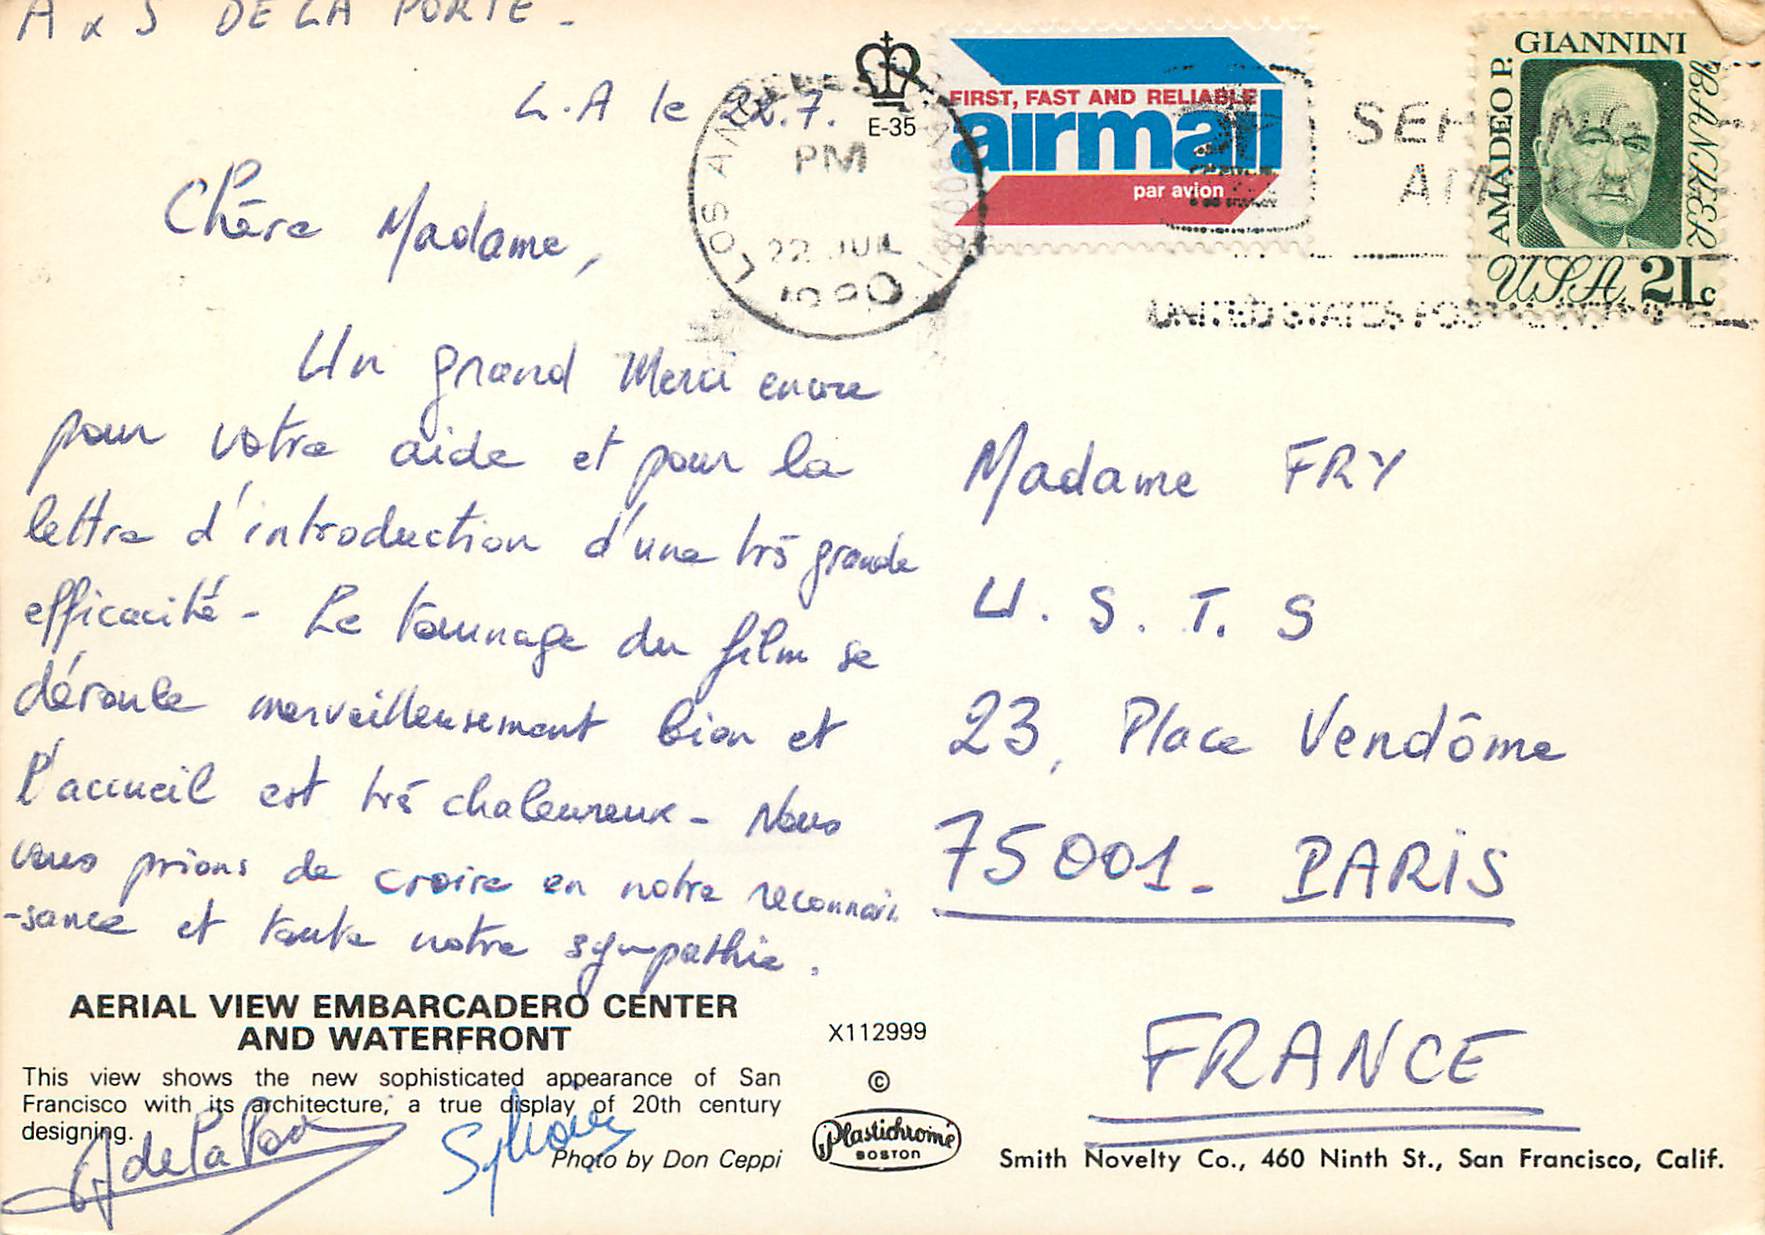 A & S DE LA PORTE -
L.A le 22.7.
Chère Madame,
Un grand Merci encore
pour votre aide et pour la
lettre d'introduction d'une très grande
efficacité - Le tournage du film se
déroule merveilleusement bien et
l'accueil est très chaleureux - Nous
vous prions de croire en notre reconnais
-sance et toute notre sympathie.
A de la Porte
Sylvaine
AERIAL VIEW EMBARCADERO CENTER
AND WATERFRONT
This view shows the new sophisticated appearance of San
Francisco with its architecture, a true display of 20th century
designing.
Photo by Don Ceppi
E-35
X112999
©
Plastichrome
BOSTON
LOS ANGELES
PM
22 JUL
1980
FIRST, FAST AND RELIABLE
airmail
par avion
UNITED STATES
AMADEO P.
GIANNINI
BANKER
USA 21c
Madame FRY
U. S. T. S
23, Place Vendôme
75001 - PARIS
FRANCE
Smith Novelty Co., 460 Ninth St., San Francisco, Calif.